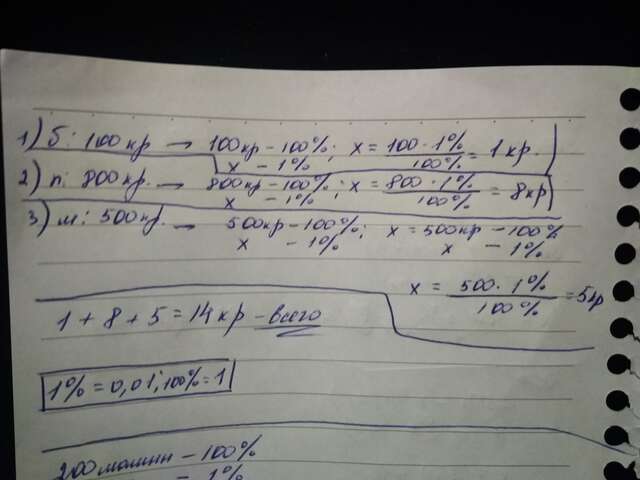 1) б: 100кр → 100кр - 100%; x = 100 · 1% / 100% = 1кр.
x - 1%
2) п: 800кр. → 800кр - 100%; x = 800 · 1% / 100% = 8кр
x - 1%
3) м: 500кр. → 500кр - 100%; x = 500кр - 100%
x - 1% x - 1%
x = 500 · 1% / 100% = 5кр
1 + 8 + 5 = 14кр - всего
1% = 0,01; 100% = 1
200 машин - 100%
- 1%